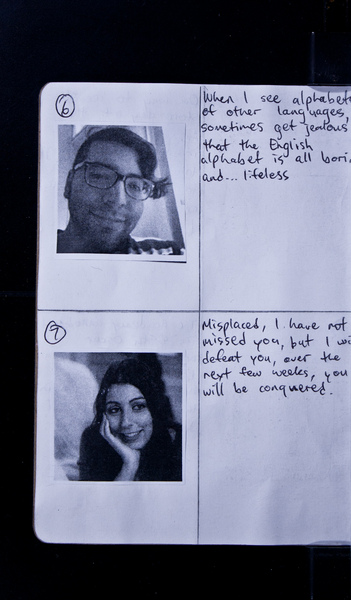 6
When I see alphabets
of other languages,
sometimes get jealous
that the English
alphabet is all
and... lifeless
7
Misplaced, I have not
missed you, but I
defeat you, over the
next few weeks, you
will be conquered.